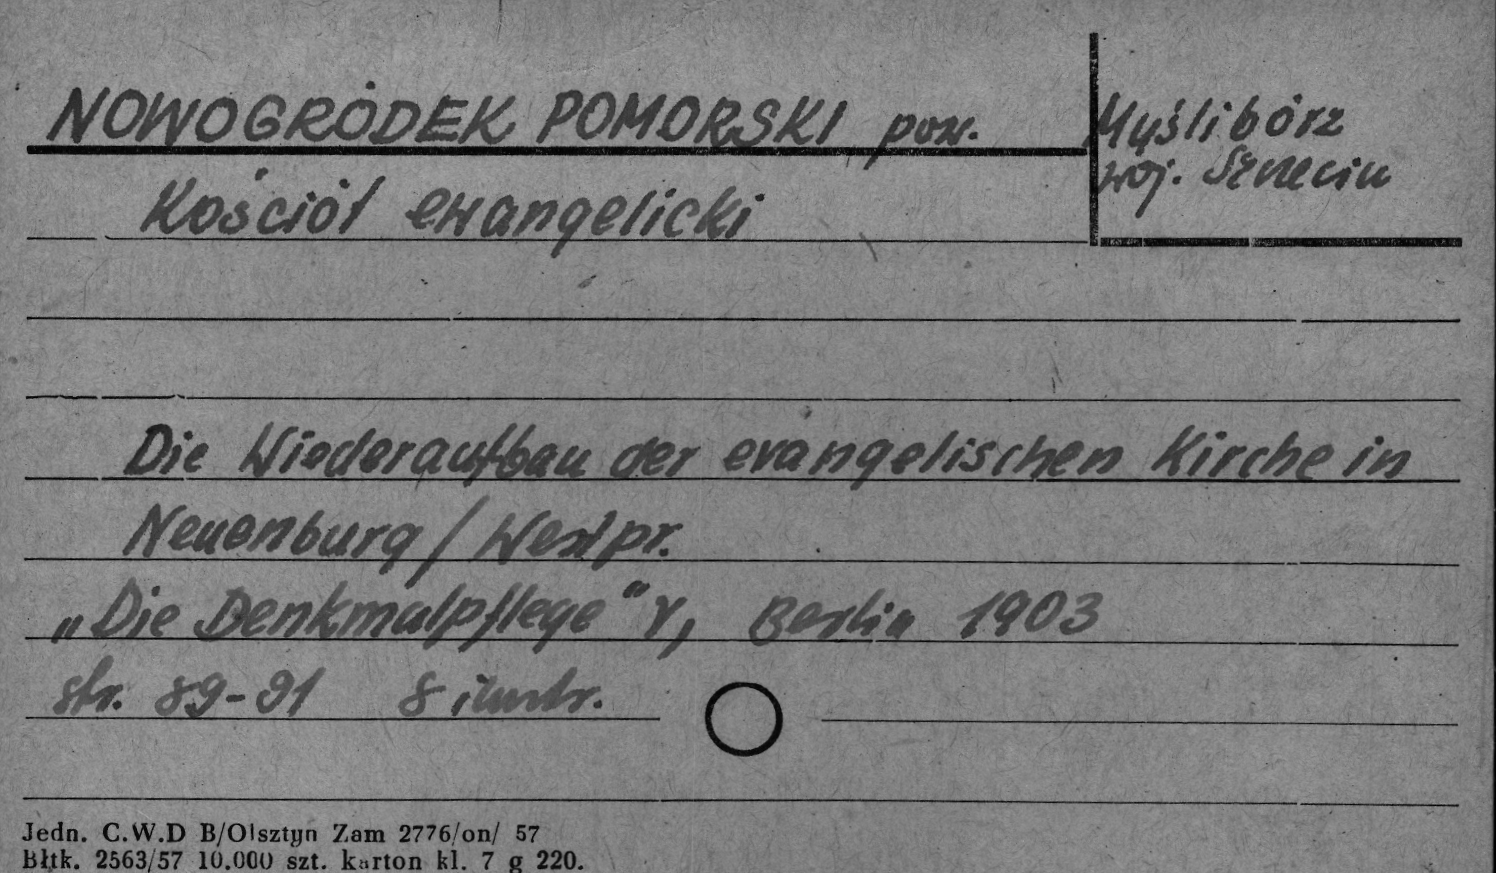 NOWOGRÓDEK POMORSKI pow. Myślibórz
woj. Szczecin
Kościół ewangelicki
Die Wiederaufbau der evangelischen Kirche in
Neuenburg / Westpr.
„Die Denkmalpflege" V, Berlin 1903
str. 89-91 8 ilustr.
Jedn. C.W.D B/Olsztyn Zam 2776/on/ 57
Błtk. 2563/57 10.000 szt. karton kl. 7 g 220.